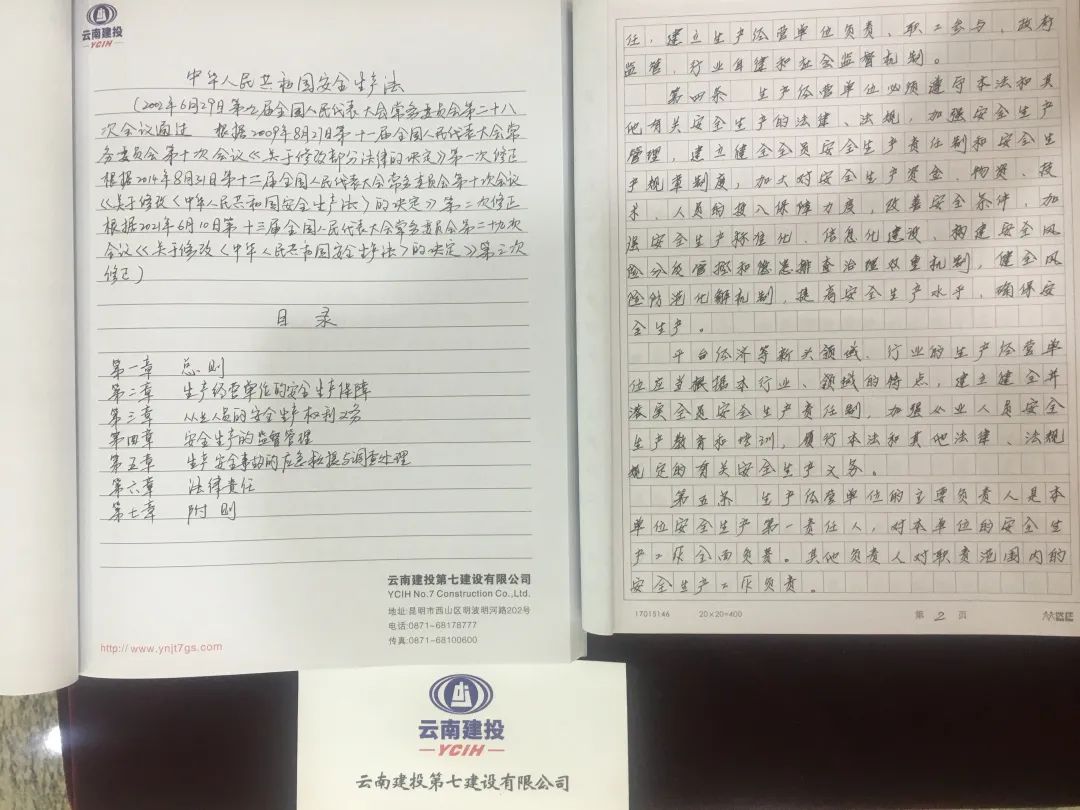 云南建投
YCIH
中华人民共和国安全生产法
(2002年6月29日第九届全国人民代表大会常务委员会第二十八
次会议通过 根据2009年8月27日第十一届全国人民代表大会常
务委员会第十次会议《关于修改部分法律的决定》第一次修正
根据2014年8月31日第十二届全国人民代表大会常务委员会第十次会议
《关于修改〈中华人民共和国安全生产法〉的决定》第二次修正
根据2021年6月10日第十三届全国人民代表大会常务委员会第二十九次
会议《关于修改〈中华人民共和国安全生产法〉的决定》第三次
修正)
目 录
第一章 总则
第二章 生产经营单位的安全生产保障
第三章 从业人员的安全生产权利义务
第四章 安全生产的监督管理
第五章 生产安全事故的应急救援与调查处理
第六章 法律责任
第七章 附则
云南建投第七建设有限公司
YCIH No.7 Construction Co.,Ltd.
地址:昆明市西山区明波明河路202号
电话:0871-68178777
传真:0871-68100600
http://www.ynjt7gs.com
任,建立生产经营单位负责、职工参与、政府
监管、行业自律和社会监督机制。
第四条 生产经营单位必须遵守本法和其
他有关安全生产的法律、法规,加强安全生产
管理,建立健全全员安全生产责任制和安全生
产规章制度,加大对安全生产资金、物资、技
术、人员的投入保障力度,改善安全条件,加
强安全生产标准化、信息化建设,构建安全风
险分级管控和隐患排查治理双重机制,健全风
险防范化解机制,提高安全生产水平,确保安
全生产。
平台经济等新兴领域、行业的生产经营单
位应当根据本行业、领域的特点,建立健全并
落实全员安全生产责任制,加强从业人员安全
生产教育和培训,履行本法和其他法律、法规
规定的有关安全生产义务。
第五条 生产经营单位的主要负责人是本
单位安全生产第一责任人,对本单位的安全生
产工作全面负责。其他负责人对职责范围内的
安全生产工作负责。
17015146 20×20=400 第 2 页
云南建投
YCIH
云南建投第七建设有限公司